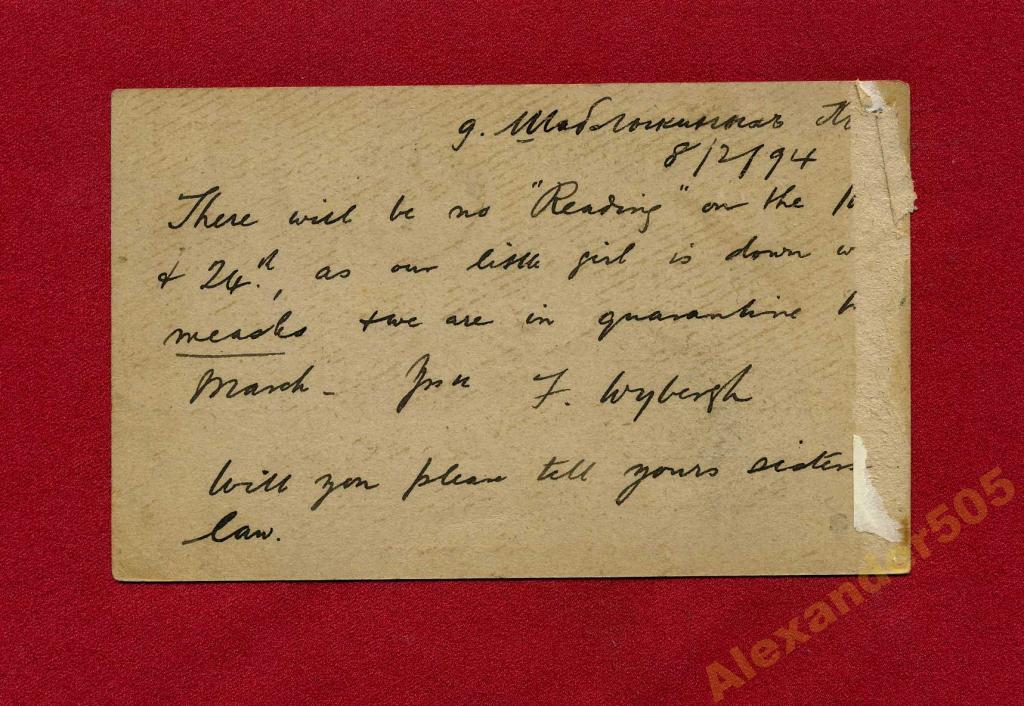 д. Шаблыкиныхъ
8/2/94
There will be no "Reading" on the
& 24th, as our little girl is down w
measles & we are in quarantine
March - F. Wybergh
Will you please tell yours sister
law.
Alexander505